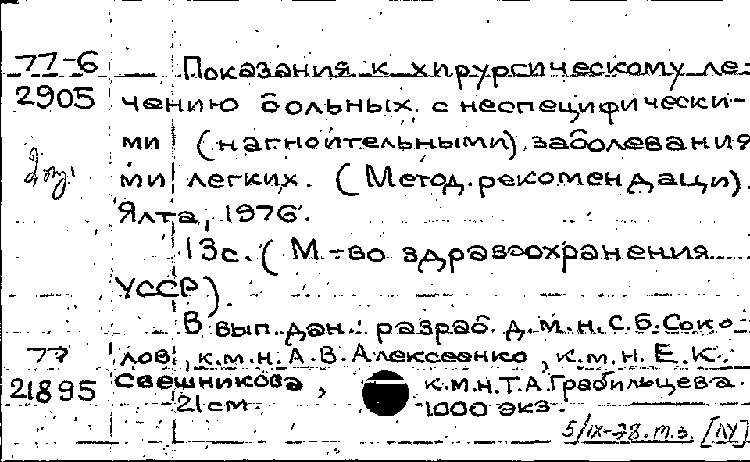 77-6 Показания к хирургическому ле-
2905 чению больных с неспецифически-
ми (нагноительными) заболевания
ми легких. (Метод. рекомендации).
Ялта, 1976.
13с. (М-во здравоохранения
УССР).
В вып. дан.: разраб. д.м.н. С.Б. Соко-
77 лов, к.м.н. А.В. Алексеенко, к.м.н. Е.К.
21895 Свешникова, к.м.н. Т.А. Грабильцева.
21см. 1000 экз.
5/IX-78. т.з. [ЛУ]